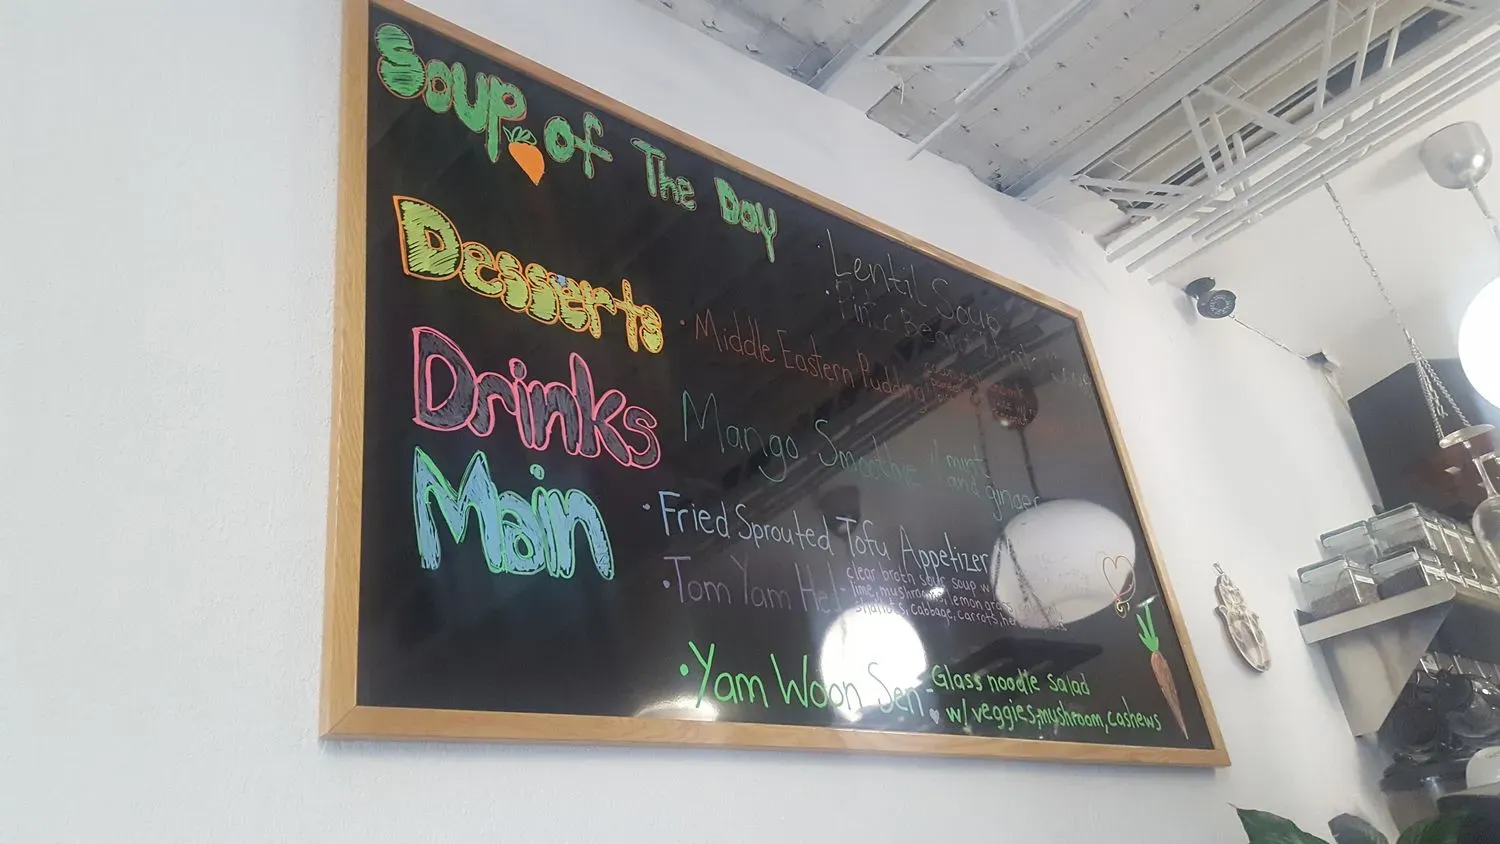 Soup of The Day
· Lentil Soup
Desserts
· Middle Eastern Pudding
Drinks
Mango Smoothie w/ mint
and ginger
Main
· Fried Sprouted Tofu Appetizer
· Tom Yam Hed - clear broth sour soup w/
lime, mushrooms, lemon grass
shallots, cabbage, carrots,
· Yam Woon Sen - Glass noodle salad
w/ veggies, mushroom, cashews